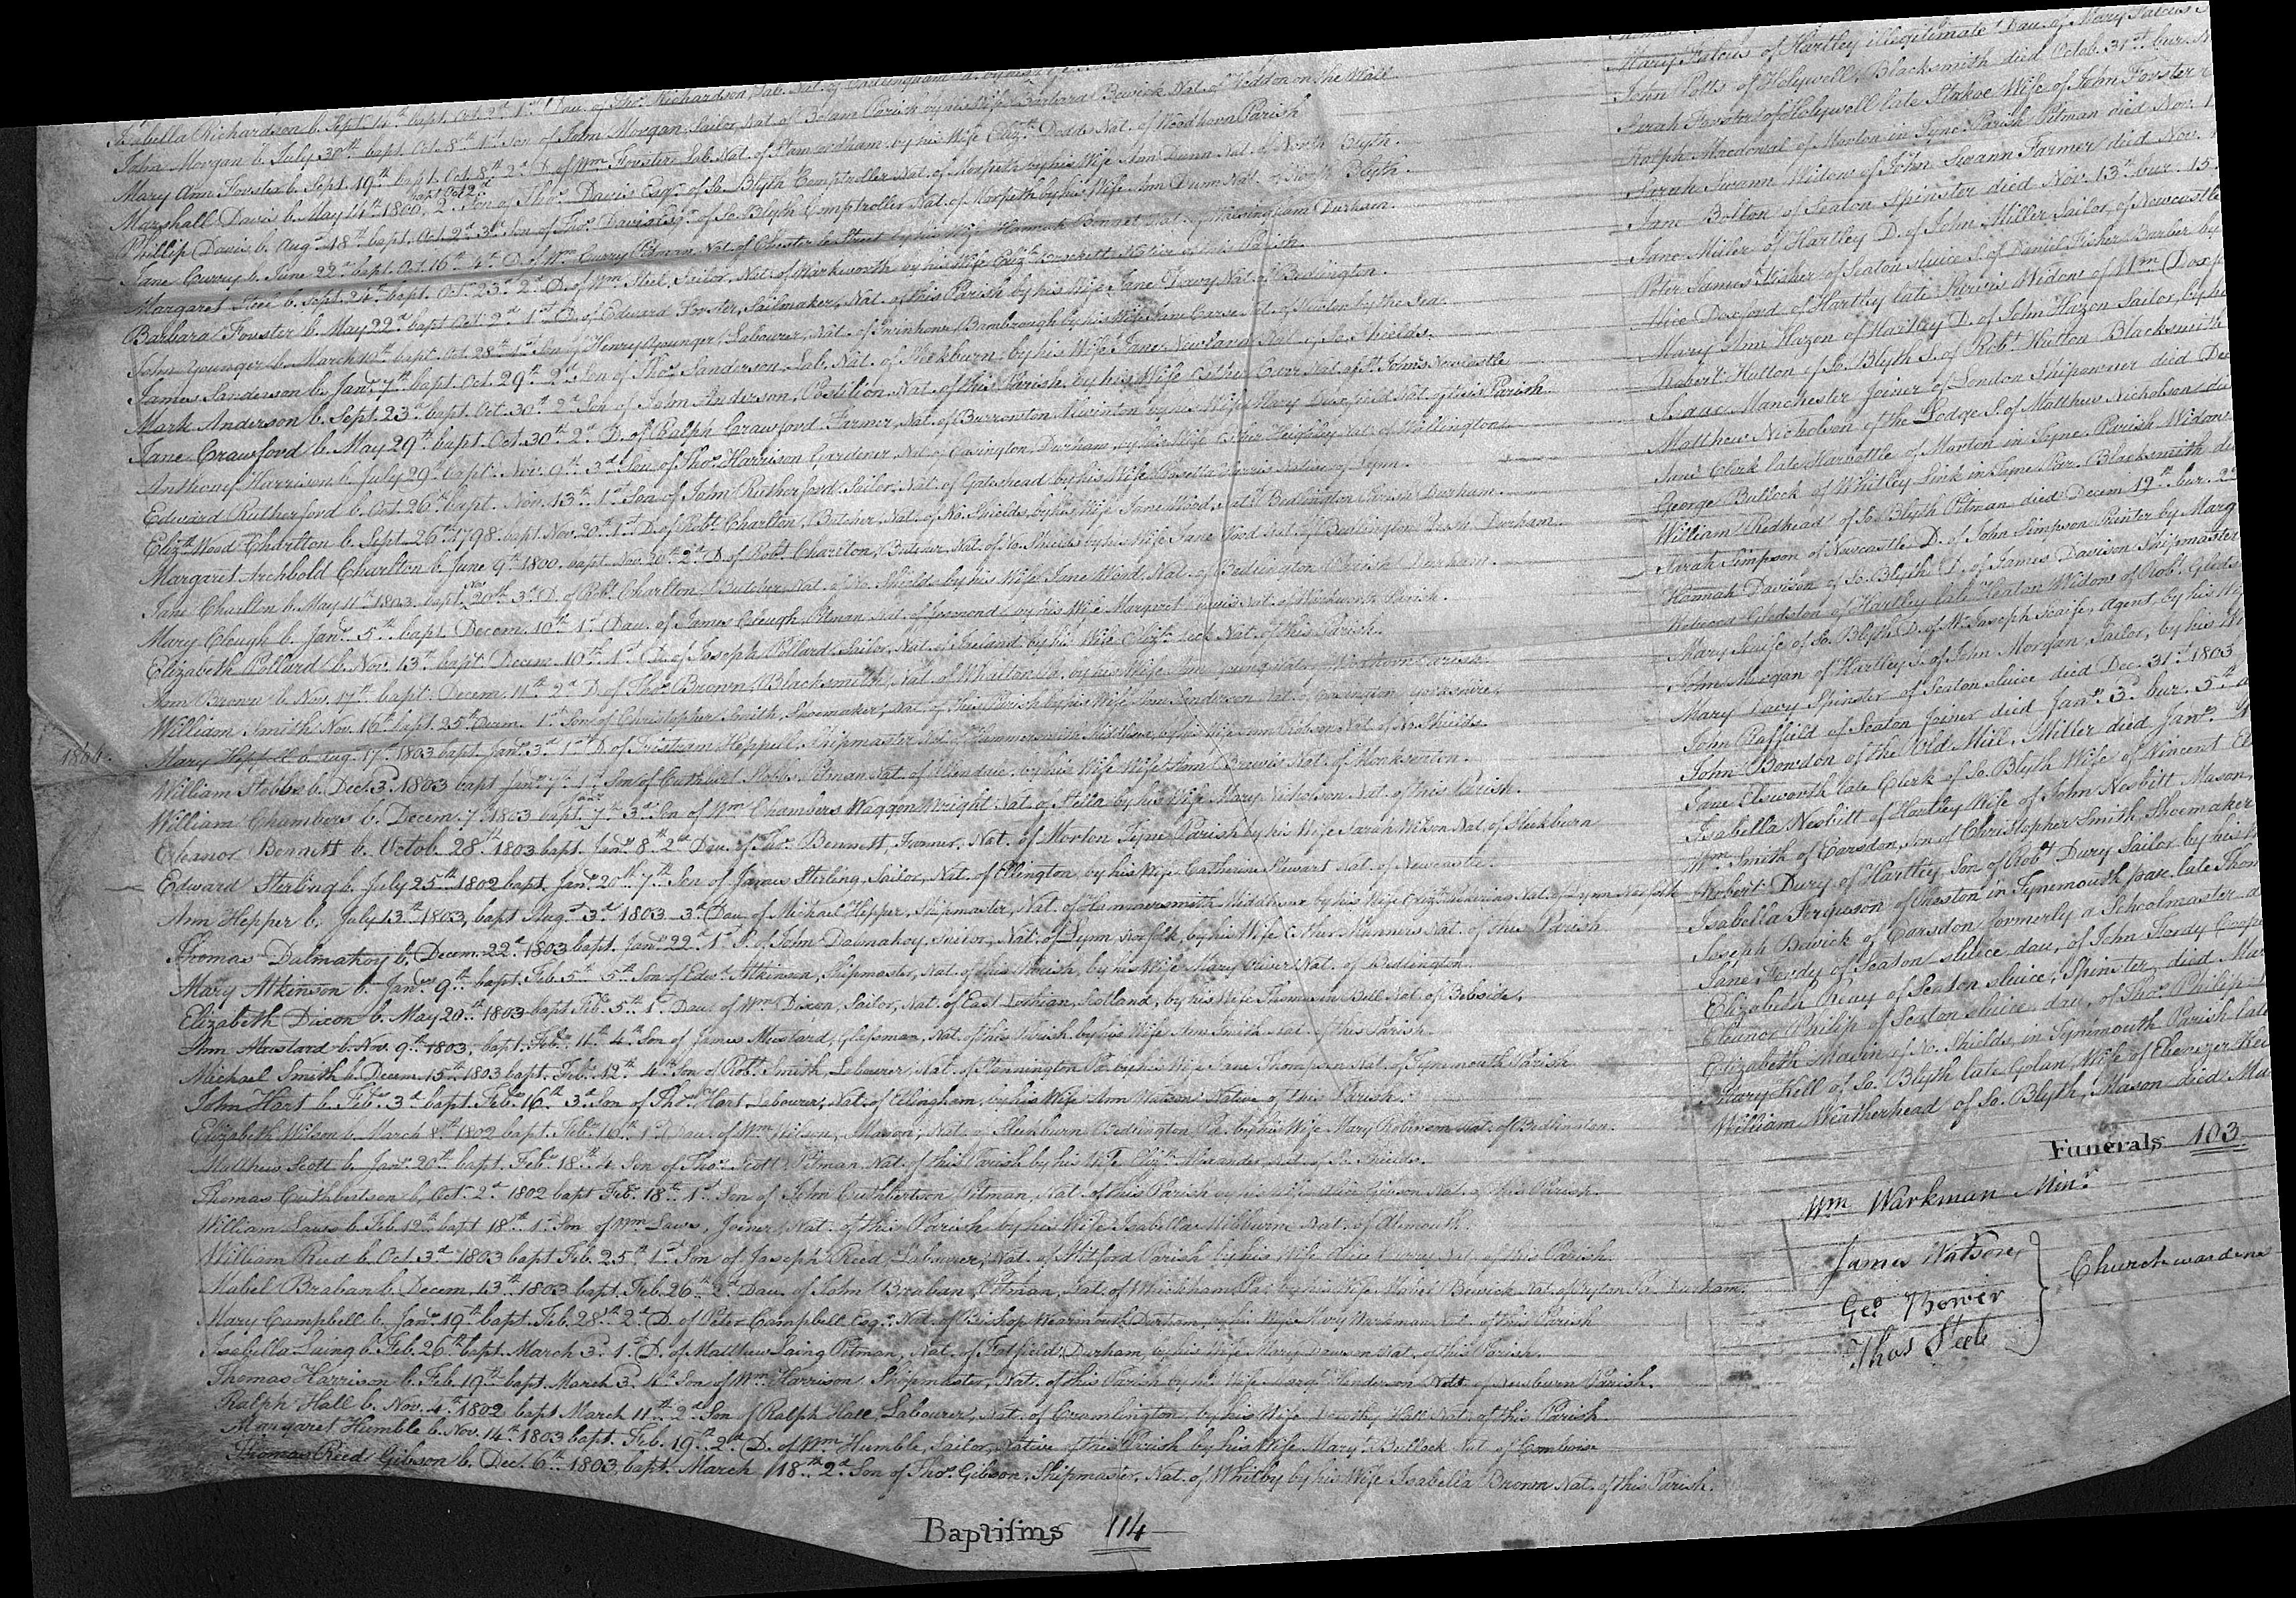 Isabella Richardson b. Sept. 14th bapt. Oct. 2d 1st Dau. of Thos. Richardson, Lab. Nat. of
John Morgan b. July 30th bapt. Oct. 8th 1st Son of John Morgan, Sailor, Nat. of Bolam Parish by his Wife Barbara Bewick Nat. of Heddon on the Wall
Mary Ann Forster b. Sept. 19th bapt. Oct. 8th 2d D. of Wm Forster Lab. Nat. of Stamfordham by his Wife Elizth Dodds Nat. of Woodhorn Parish
Marshall Davis b. May 14th 1800, bapt. Oct. 2d 2d Son of Thos. Davis Esqr. of So. Blyth Comptroller Nat. of Morpeth by his Wife Ann Dunn Nat. of North Blyth.
Phillip Davis b. Augst 18th bapt. Oct. 2d 3d Son of Thos. Davis Esqr. of So. Blyth Comptroller Nat. of Morpeth by his Wife Ann Dunn Nat. of North Blyth.
Jane Currey b. June 22d bapt. Oct. 16th 4th D. of Wm Currey Pitman, Nat. of Chester le Street by his Wife Hannah Bonner Nat. of Durham.
Margaret Steel b. Sept. 24th bapt. Oct. 23d 2d D. of Wm Steel, Sailor, Nat. of Warkworth by his Wife Elizth Crockett Native of this Parish.
Barbara Forster b. May 22d bapt. Oct. 2d 1st D. of Edward Forster, Sailmaker, Nat. of this Parish by his Wife Jane Dewy Nat. of Bedlington.
John Younger b. March 10th bapt. Oct. 28th 1st Son of Henry Younger, Labourer, Nat. of Bambrough by his Wife Jane Carse Nat. of Newton by the Sea.
James Sanderson b. Jany. 7th bapt. Oct. 29th 2d Son of Thos. Sanderson Lab. Nat. of Sleekburn, by his Wife Jane Newlands Nat. of So. Shields.
Mark Anderson b. Sept. 23d bapt. Oct. 30th 2d Son of John Anderson, Postilion Nat. of this Parish, by his Wife Esther Carr Nat. of St. John's Newcastle
Jane Crawford b. May 29th bapt. Oct. 30th 2d D. of Ralph Crawford Farmer, Nat. of Burrowton Alwinton by his Wife Mary Duxfield Nat. of this Parish.
Anthony Harrison b. July 29th bapt. Nov. 9th 3d Son of Thos. Harrison Gardener, Nat. of Easington, Durham, by his Wife Esther Heighley Nat. of Willington.
Edward Rutherford b. Oct. 26th bapt. Nov. 13th 1st Son of John Rutherford Sailor, Nat. of Gateshead by his Wife Rosetta Harris Native of Lynn.
Elizth Wood Charlton b. Sept. 26th 1798 bapt. Nov. 20th 1st D. of Robt. Charlton, Butcher, Nat. of No. Shields, by his Wife Jane Wood, Nat. of Bedlington Parish Durham.
Margaret Archbold Charlton b. June 9th 1800. bapt. Nov. 20th 2d D. of Robt. Charlton, Butcher Nat. of No. Shields by his Wife Jane Wood Nat. of Bedlington Parish Durham.
Jane Charlton b. May 11th 1803. bapt. Nov. 20th 3d D. of Robt. Charlton, Butcher, Nat. of No. Shields by his Wife Jane Wood, Nat. of Bedlington Parish Durham.
Mary Clough b. Jany. 5th bapt. Decem. 10th 1st Dau. of James Clough, Pitman Nat. of Jesmond by his Wife Margaret Nat. of Warkworth Parish.
Elizabeth Pollard b. Nov. 13th bapt. Decem. 10th 1st D. of Joseph Pollard Sailor, Nat. of Ireland by his Wife Elizth Leck Nat. of this Parish.
Ann Brown b. Nov. 17th bapt. Decem. 11th 2d D. of Thos. Brown, Blacksmith, Nat. of Whalton Pa. by his Wife Ann Young Nat. of Woodhorn Parish.
William Smith Nov. 16th bapt. 25th Decem. 1st Son of Christopher Smith, Shoemaker, Nat. of this Parish by his Wife Jane Sanderson Nat. of Easington Yorkshire.
1804. Mary Heppell b. Aug. 17th 1803 bapt. Jany. 3d 1st D. of Tristram Heppell, Shipmaster Nat. of Hammersmith Middlesex, by his Wife Ann Robson Nat. of No. Shields.
William Stobbs b. Dec. 3d 1803 bapt. Jany. 7th 1st Son of Cuthbert Stobbs Pitman Nat. of Allendale by his Wife Wife Ann Brewis Nat. of Monkseaton.
William Chambers b. Decem. 7th 1803 bapt. Jany. 7th 3d Son of Wm Chambers Waggon Wright Nat. of Stella by his Wife Mary Nicholson Nat. of this Parish.
Eleanor Bennett b. Octob. 28th 1803 bapt. Jany. 8th 2d Dau. of Thos. Bennett Farmer, Nat. of Morton Tyne Parish by his Wife Sarah Wilson Nat. of Sleekburn
Edward Sterling b. July 25th 1802 bapt. Jany. 20th 7th Son of James Sterling, Sailor, Nat. of Ellington, by his Wife Catherine Stewart Nat. of Newcastle.
Ann Hepper b. July 13th 1803, bapt. Augst 3d 1803 3d Dau. of Michael Hepper, Shipmaster, Nat. of Hammersmith Middlesex by his Wife Elizth Pickering Nat. of Lynn Norfolk
Thomas Dalmahoy b. Decem. 22d 1803 bapt. Jany. 22d 1st S. of John Dalmahoy, Sailor, Nat. of Lynn, Norfolk, by his Wife Esther Manners Nat. of this Parish
Mary Atkinson b. Jany. 9th bapt. Feb. 5th 5th Son of Edwd. Atkinson, Shipmaster, Nat. of this Parish, by his Wife Mary Oliver Nat. of Bedlington.
Elizabeth Dixon b. May 20th 1803 bapt. Feb. 5th 1st Dau. of Wm Dixon, Sailor, Nat. of East Lothian, Scotland, by his Wife Thomasin Bell Nat. of Bebside.
Ann Mustard b. Nov. 9th 1803, bapt. Feb. 11th 4th Son of James Mustard, Glassman, Nat. of this Parish by his Wife Ann Smith Nat. of this Parish
Michael Smith b. Decem. 15th 1803 bapt. Feb. 12th 4th Son of Robt. Smith, Labourer, Nat. of Stannington Pa. by his Wife Jane Thompson Nat. of Tynemouth Parish
John Hart b. Feb. 3d bapt. Feb. 16th 3d Son of Thos. Hart Labourer, Nat. of Ellingham, by his Wife Ann Watson Native of this Parish.
Elizabeth Wilson b. March 8th 1802 bapt. Feb. 16th 1st Dau. of Wm Wilson, Mason, Nat. of Sleekburn Bedlington Pa. by his Wife Mary Robinson Nat. of Bedlington.
Matthew Scott b. Jany. 20th bapt. Feb. 18th 4 Son of Thos. Scott Pitman Nat. of this Parish by his Wife Elizth Alexander Nat. of So. Shields.
Thomas Cuthbertson b. Oct. 2d 1802 bapt. Feb. 18th 1st Son of John Cuthbertson Pitman, Nat. of this Parish by his Wife Alice Gibson Nat. of this Parish.
William Laws b. Feb. 12th bapt. 18th 1st Son of Wm Laws, Joiner, Nat. of this Parish by his Wife Isabella Milburn Nat. of Alemouth.
William Reed b. Oct. 3d 1803 bapt. Feb. 25th 1st Son of Joseph Reed, Labourer, Nat. of Mitford Parish by his Wife Alice Currey Nat. of this Parish.
Mabel Braban b. Decem. 13th 1803 bapt. Feb. 26th 2d Dau. of John Braban, Pitman, Nat. of Whickham Pa. by his Wife Mabel Bewick Nat. of Ryton Pa. Durham.
Mary Campbell b. Jany. 19th bapt. Feb. 28th 2d D. of Peter Campbell Esqr. Nat. of Bishop Wearmouth Durham, by his Wife Mary Warkman Nat. of this Parish
Isabella Laing b. Feb. 26th bapt. March 3d 1st D. of Matthew Laing Pitman, Nat. of Fatfield, Durham, by his Wife Mary Dawson Nat. of this Parish.
Thomas Harrison b. Feb. 19th bapt. March 3d 4th Son of Wm Harrison Shipmaster, Nat. of this Parish by his Wife Margt. Henderson Nat. of Newburn Parish.
Ralph Hall b. Nov. 4th 1802 bapt. March 11th 2d Son of Ralph Hall, Labourer, Nat. of Cramlington, by his Wife Dorothy Hall Nat. of this Parish.
Margaret Humble b. Nov. 14th 1803 bapt. Feb. 19th 2d D. of Wm Humble, Sailor, Native of this Parish by his Wife Mary Bullock Nat. of Cambois
Thomas Reed Gibson b. Dec. 6th 1803, bapt. March 18th 2d Son of Thos. Gibson, Shipmaster, Nat. of Whitby by his Wife Isabella Brown Nat. of this Parish.
Baptisms 114
Mary Falcus of Hartley illegitimate Dau. of Mary Falcus
John Potts of Holywell, Blacksmith died Octob. 31st bur. N
Sarah Forster of Holywell late Stokoe Wife of John Forster
Ralph Macdonal of Morton in Tyne. Parish Pitman died Nov. 1
Sarah Swann Widow of John Swann Farmer died Nov.
Jane Bolton of Seaton Spinster died Nov. 13th bur. 15
Jane Miller of Hartley D. of John Miller Sailor, of Newcastle
Peter James Fisher of Seaton sluice S. of Daniel Fisher Barber by
Alice Doxford of Hartley late Purvis Widow of Wm Doxf
Mary Ann Hazon of Hartley D. of John Hazon Sailor, by h
Robert Hutton of So. Blyth S. of Robt Hutton Blacksmith
Isaac Manchester Joiner of London Shipowner died Dec
Matthew Nicholson of the Lodge S. of Matthew Nicholson di
Jane Clerk late Harbottle of Morton in Tyne. Parish Widow
George Bullock of Whitley Link in Tyne Par. Blacksmith di
William Redhead of So. Blyth Pitman died Decem 19th bur. 22
Sarah Simpson of Newcastle D. of John Simpson Printer by Marg
Hannah Davison of So. Blyth D. of James Davison Shipmaster
Rebecca Gledston of Hartley late Heaton Widow of Robt. Gledst
Mary Scaife of So. Blyth D. of Mr Joseph Scaife, Agent, by his Wi
John Morgan of Hartley S. of John Morgan, Sailor, by his W
Mary Davy Spinster of Seaton sluice died Dec. 31st 1803
John Raffield of Seaton Joiner died Jany. 3d bur. 5th
John Bowdon of the Old Mill, Miller died Jany.
Jane Elsworth late Clerk of So. Blyth Wife of Vincent El
Isabella Nesbitt of Hartley Wife of John Nesbitt Mason,
Wm Smith of Earsdon, Son of Christopher Smith, Shoemaker
Robert Dury of Hartley Son of Robt Dury Sailor by his
Isabella Ferguson of Cheston in Tynemouth par. late Thom
Joseph Bewick of Earsdon formerly a Schoolmaster d
Jane Hordy of Seaton sluice dau, of John Hordy Coope
Elizabeth Reay of Seaton sluice, Spinster, died Mar
Eleanor Philip of Seaton sluice, dau, of Thos. Philip
Elizabeth Mavin of No. Shields, in Tynemouth Parish late
Mary Kell of So. Blyth late Golan, Wife of Ebenezer Kel
William Weatherhead of So. Blyth, Mason died Ma
Funerals 103
Wm Warkman Minr.
James Watson
Geo Bower
Thos Steele
Churchwardens